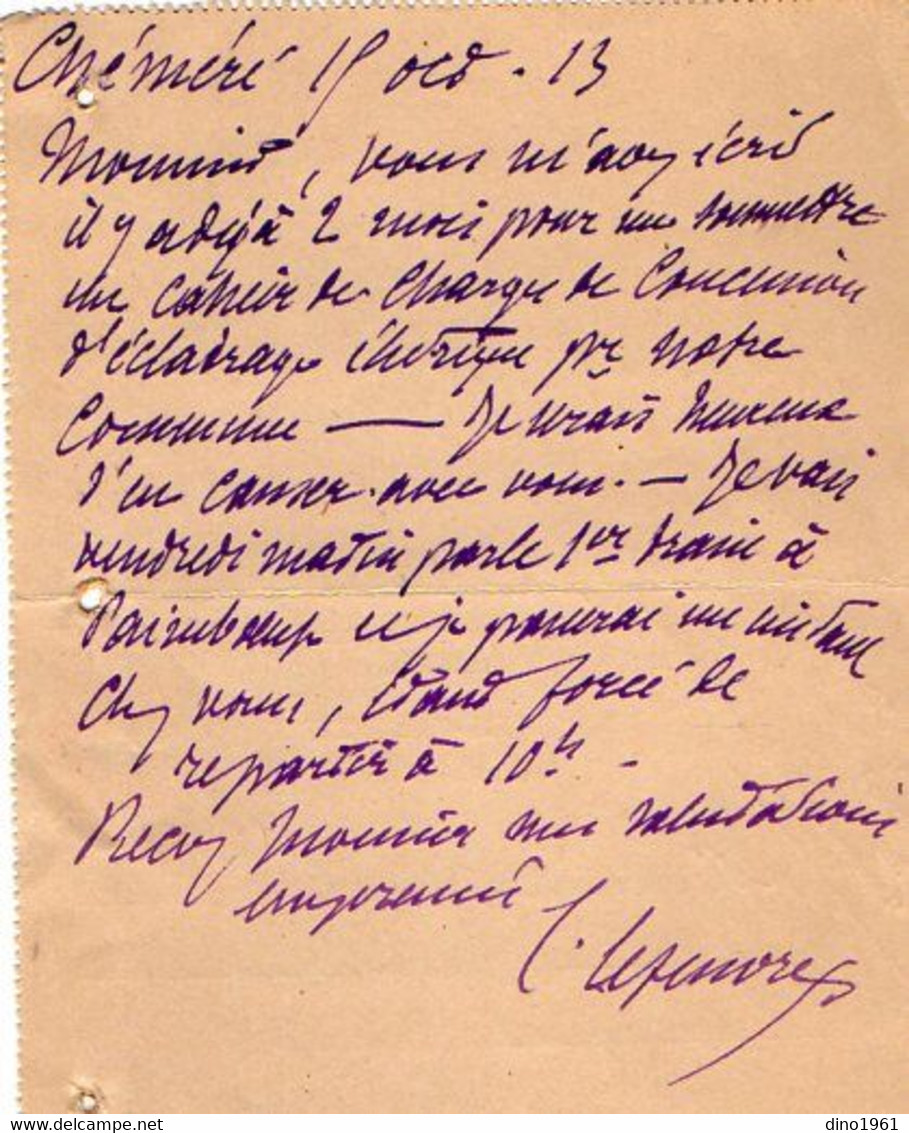 Chéméré 15 oct. 13
Monsieur, vous m'avez écrit
il y a déjà 2 mois pour me soumettre
un cahier de charges de Concession
d'éclairage électrique pr notre
Commune — Je serais heureux
d'en causer avec vous. — Je vais
vendredi matin par le 1er train à
Paimboeuf et je passerai un instant
chez vous, étant forcé de
repartir à 10h -
Recevez Monsieur mes salutations
empressées
dino1961